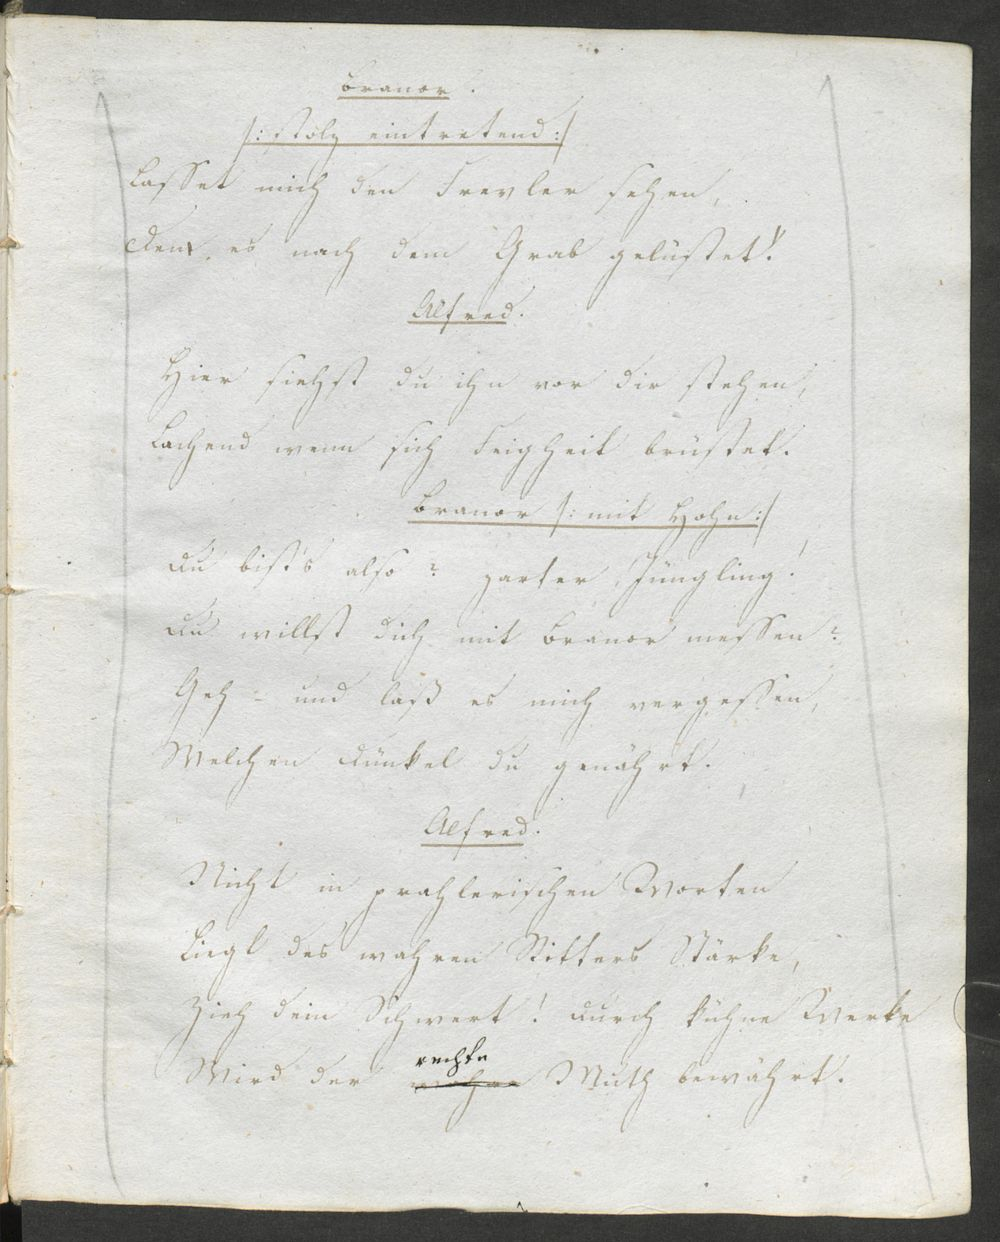 Branor.
/: stolz eintretend :/
Lasset mich den Frevler sehen,
Den, es nach dem Grab gelüstet!
Alfred.
Hier siehst du ihn vor dir stehen,
Lachend wenn sich Feigheit brüstet.
Branor /: mit Hohn :/
Du bist's also? zarter Jüngling!
Du willst dich mit Branor messen?
Geh – und laß es mich vergessen,
Welchen Dünkel du genährt.
Alfred.
Nicht in prahlerischen Worten
Liegt des wahren Ritters Stärke,
Zieh dein Schwert! Durch kühne Werke
rechte
Wird der wahre Muth bewährt.